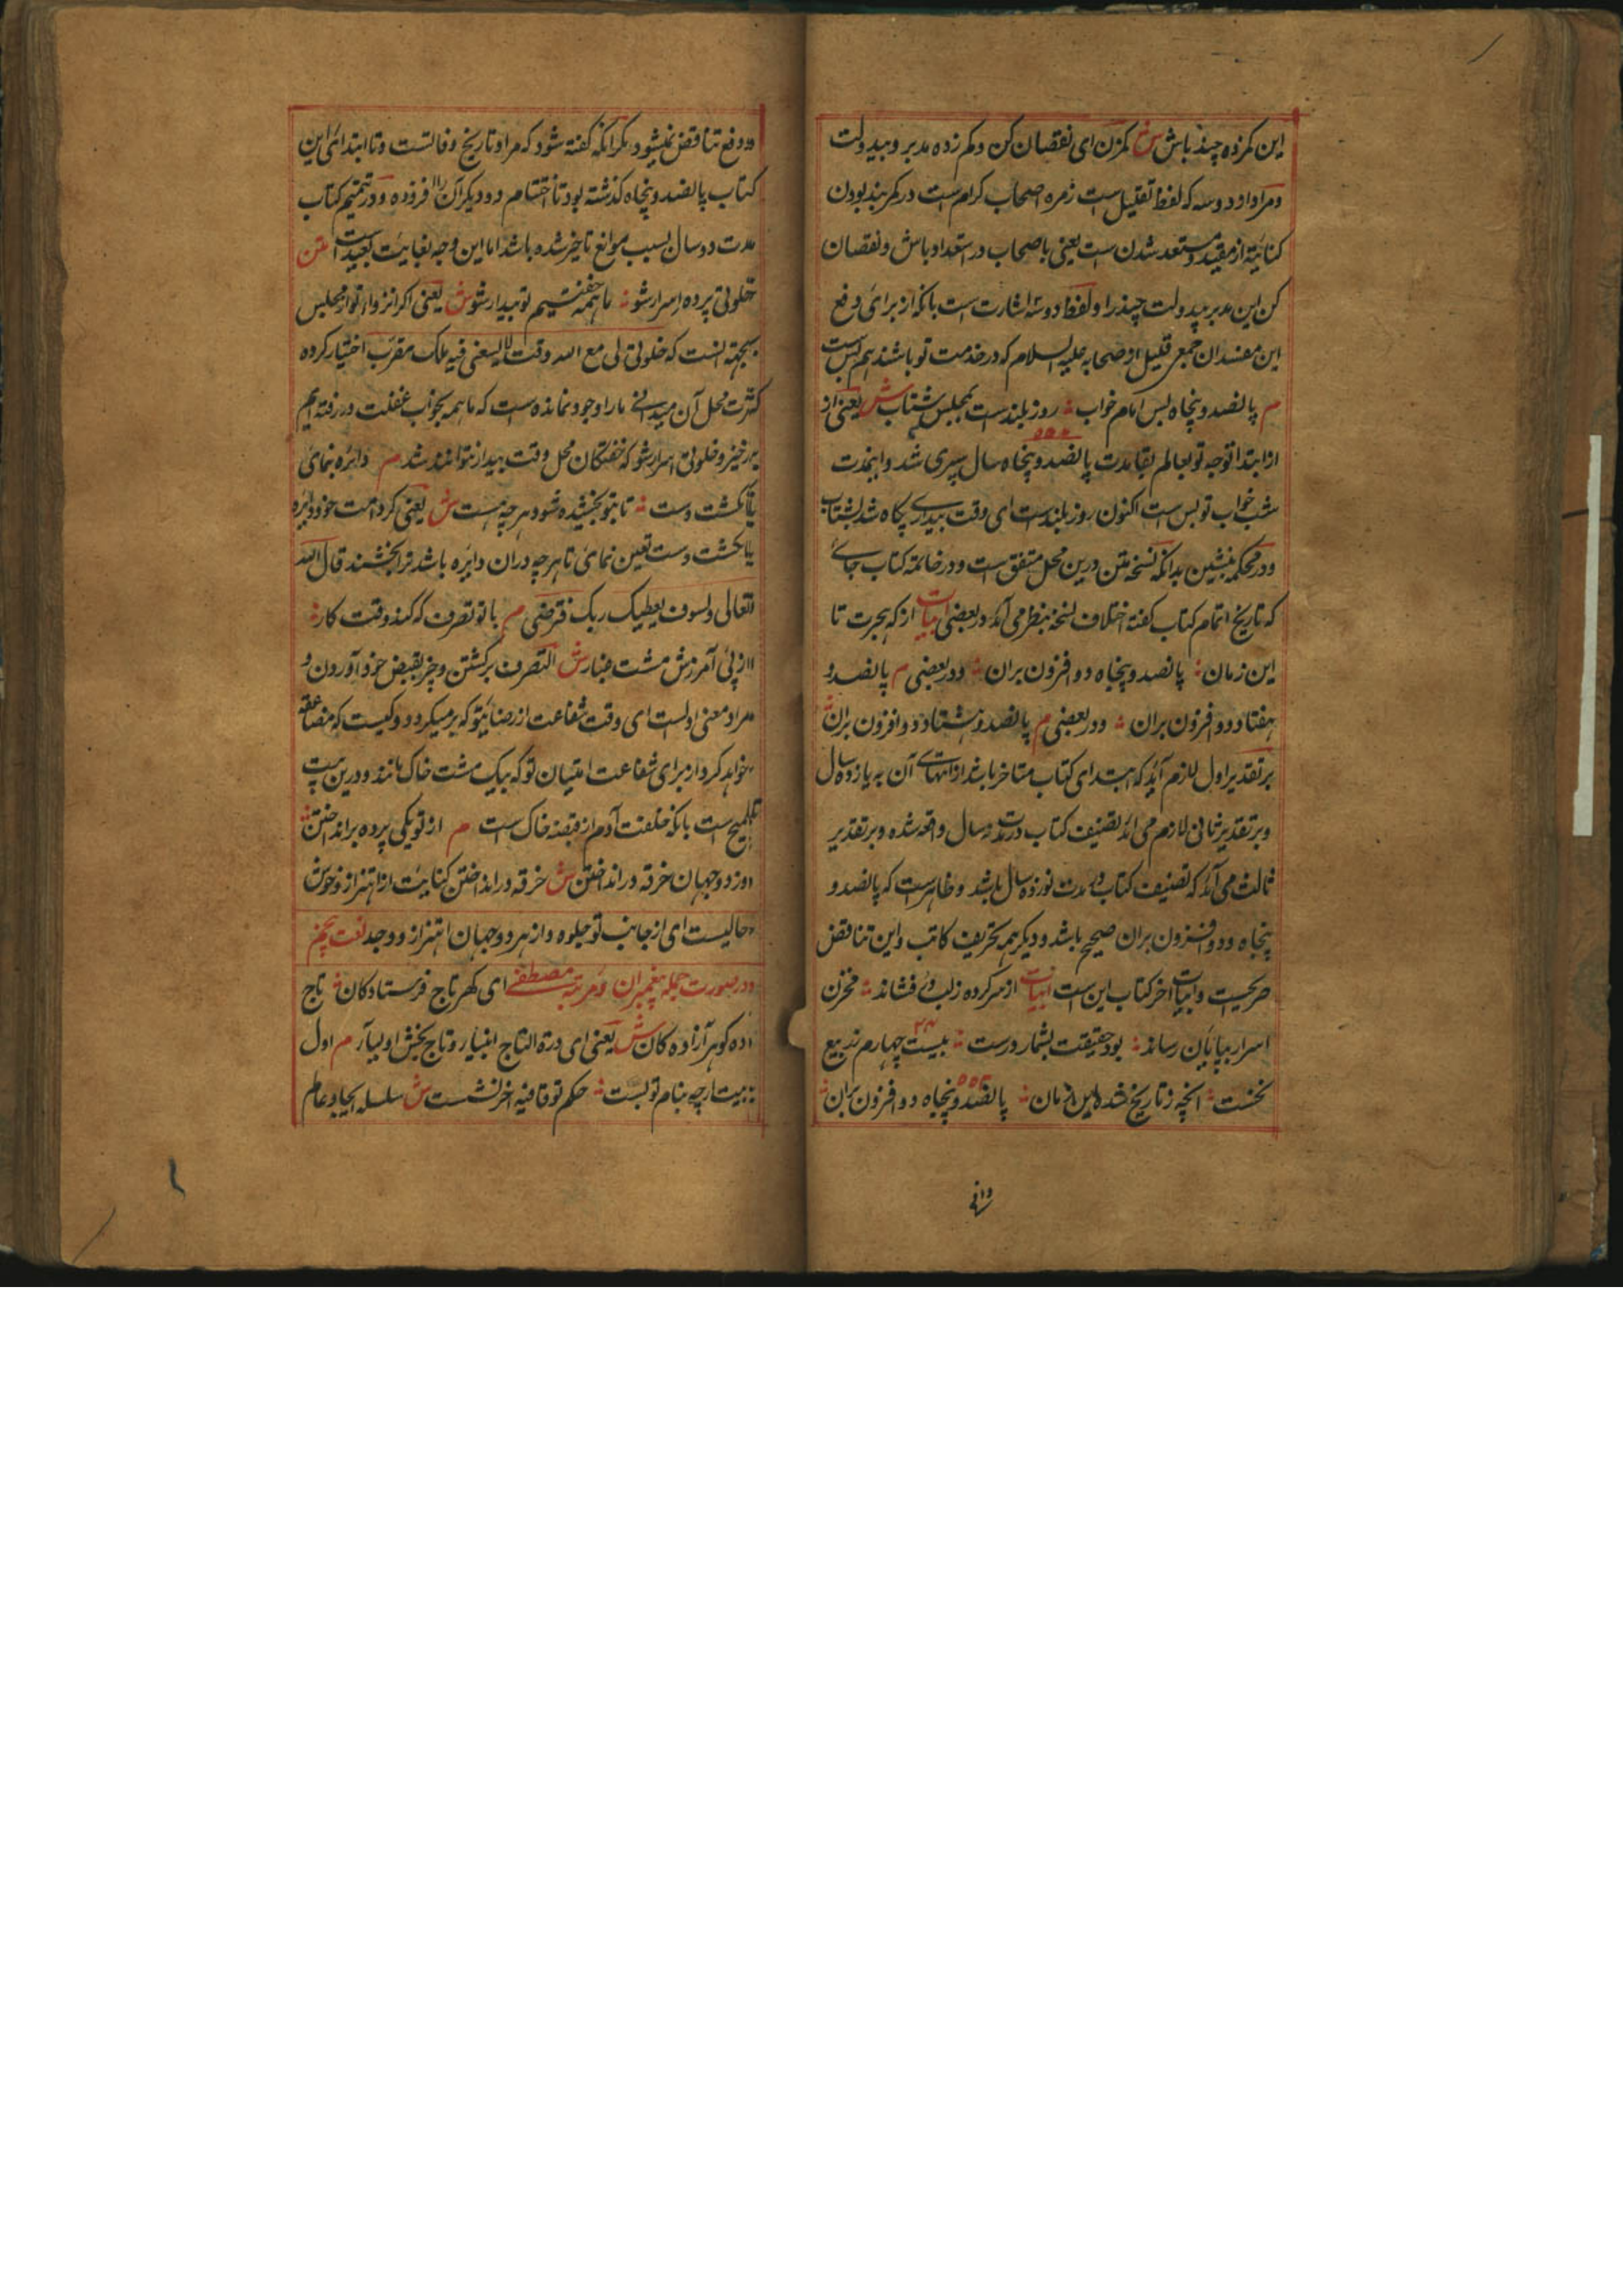 این کمزده چند باش ش کمزن ای نقصان کن و کم زده مدبر و بیدولت
و مراد او دو سه که لفظ تقلیل است زمره اصحاب کرام است در کمربند بودن
کنایة از مقید و مستعد شدن است یعنی باصحاب در استعداد باش و نقصان
کن این مدبر بیدولت چند را و لفظ دو سه اشارت است بانکه از برای دفع
این مفسدان جمعی قلیل از صحابه علیه السلام که در خدمت تو باشند هم بس است
م پانصد و پنجاه بس ایام خواب روز بلند است بمجلس شتاب ش یعنی از
از ابتدا توجه تو بعالم بقا مدت پانصد و پنجاه سال سپری شد و اینمدت
شب خواب تو بس است اکنون روز بلند است ای وقت بیداری پگاه شد بشتاب
و در محکمه بنشین بدانکه نسخه متن درین محل متفق است و در خاتمه کتاب جای
که تاریخ اتمام کتاب گفته اختلاف نسخه بنظر می آید در بعضی ابیات از گه هجرت تا
این زمان پانصد و پنجاه و دو افزون بران و در بعضی م پانصد و
هفتاد و دو افزون بران و در بعضی م پانصد و هشتاد و دو افزون بران
بر تقدیر اول لازم آید که ابتدای کتاب متاخر باشد از انتهای آن به یازده سال
و بر تقدیر ثانی لازم می آید تصنیف کتاب در مدت سال واقع شده و بر تقدیر
ثالث می آید که تصنیف کتاب در مدت نوزده سال باشد و ظاهر است که پانصد و
پنجاه و دو افزون بران صحیح باشد و دیگر همه تحریف کاتب و این تناقض
صریحست و ابیات اخر کتاب این است ابیات از سر کرده زلب در فشاند مخزن
اسرار بپایان رساند بود حقیقت بشمار درست بیست چهارم ز ربیع
نخست انچه ز تاریخ شده این زمان پانصد و پنجاه و دو افزون بران
وانی
و دفع تناقض نمیشود مگر آنکه گفته شود که مراد تاریخ وفاتست و تا ابتدای این
کتاب پانصد و پنجاه گذشته بود تا اختتام دو دیگر آن را افزوده و در تتمیم کتاب
مدت دو سال بسبب موانع تاخیر شده باشد اما این وجه بغایت بعید است متن
خلوتی پرده اسرار شو ما همه خفتیم تو بیدار شو ش یعنی اگر انزوای تو از مجلس
بجهت انست که خلوتی لی مع الله وقت لا یسعنی فیه ملک مقرب اختیار کرده
کثرت محل آن میدانی ما را وجود نمانده است که ما همه بخواب غفلت در رفته ایم
برخیز و خلوتی اسرار شو که خفتگان محل وقت بیدار نتوانند شد م دایره نمای
بانگشت دست تا بتو بخشیده شود هر چه هست ش یعنی گرد امت خود دایره
بانگشت دست تعین نمای تا هر چه دران دایره باشد ترا بخشند قال الله
تعالی و لسوف یعطیک ربک فترضی م با تو تصرف که کند وقت کار
از پی آمرزش مشت غبار ش التصرف برگشتن و چیز بقبض خود آوردن و
مراد معنی اولست ای وقت شفاعت از رضای تو که برمیگردد و کیست که مضایقه
خواهد کرد از برای شفاعت امتیان تو که بیک مشت خاک مانند و درین بیت
تلمیح است بانکه خلقت آدم از قبضه خاک است م از تو یکی پرده برانداختن
وز دو جهان خرقه در انداختن ش خرقه در انداختن کنایت از اهتزاز و خوش
حالیست ای از جانب تو جلوه و از هر دو جهان اهتزاز و وجد نعت پنجم
در صورت جمله پیغمبران و مرتبه مصطفی ای گهر تاج فرستادگان تاج
ده گوهر آزادگان ش یعنی ای درة التاج انبیا و تاج بخش اولیا م اول
بیت ارچه بنام تو بست حکم تو قافیه اخر نشست ش سلسله ایجاد عالم